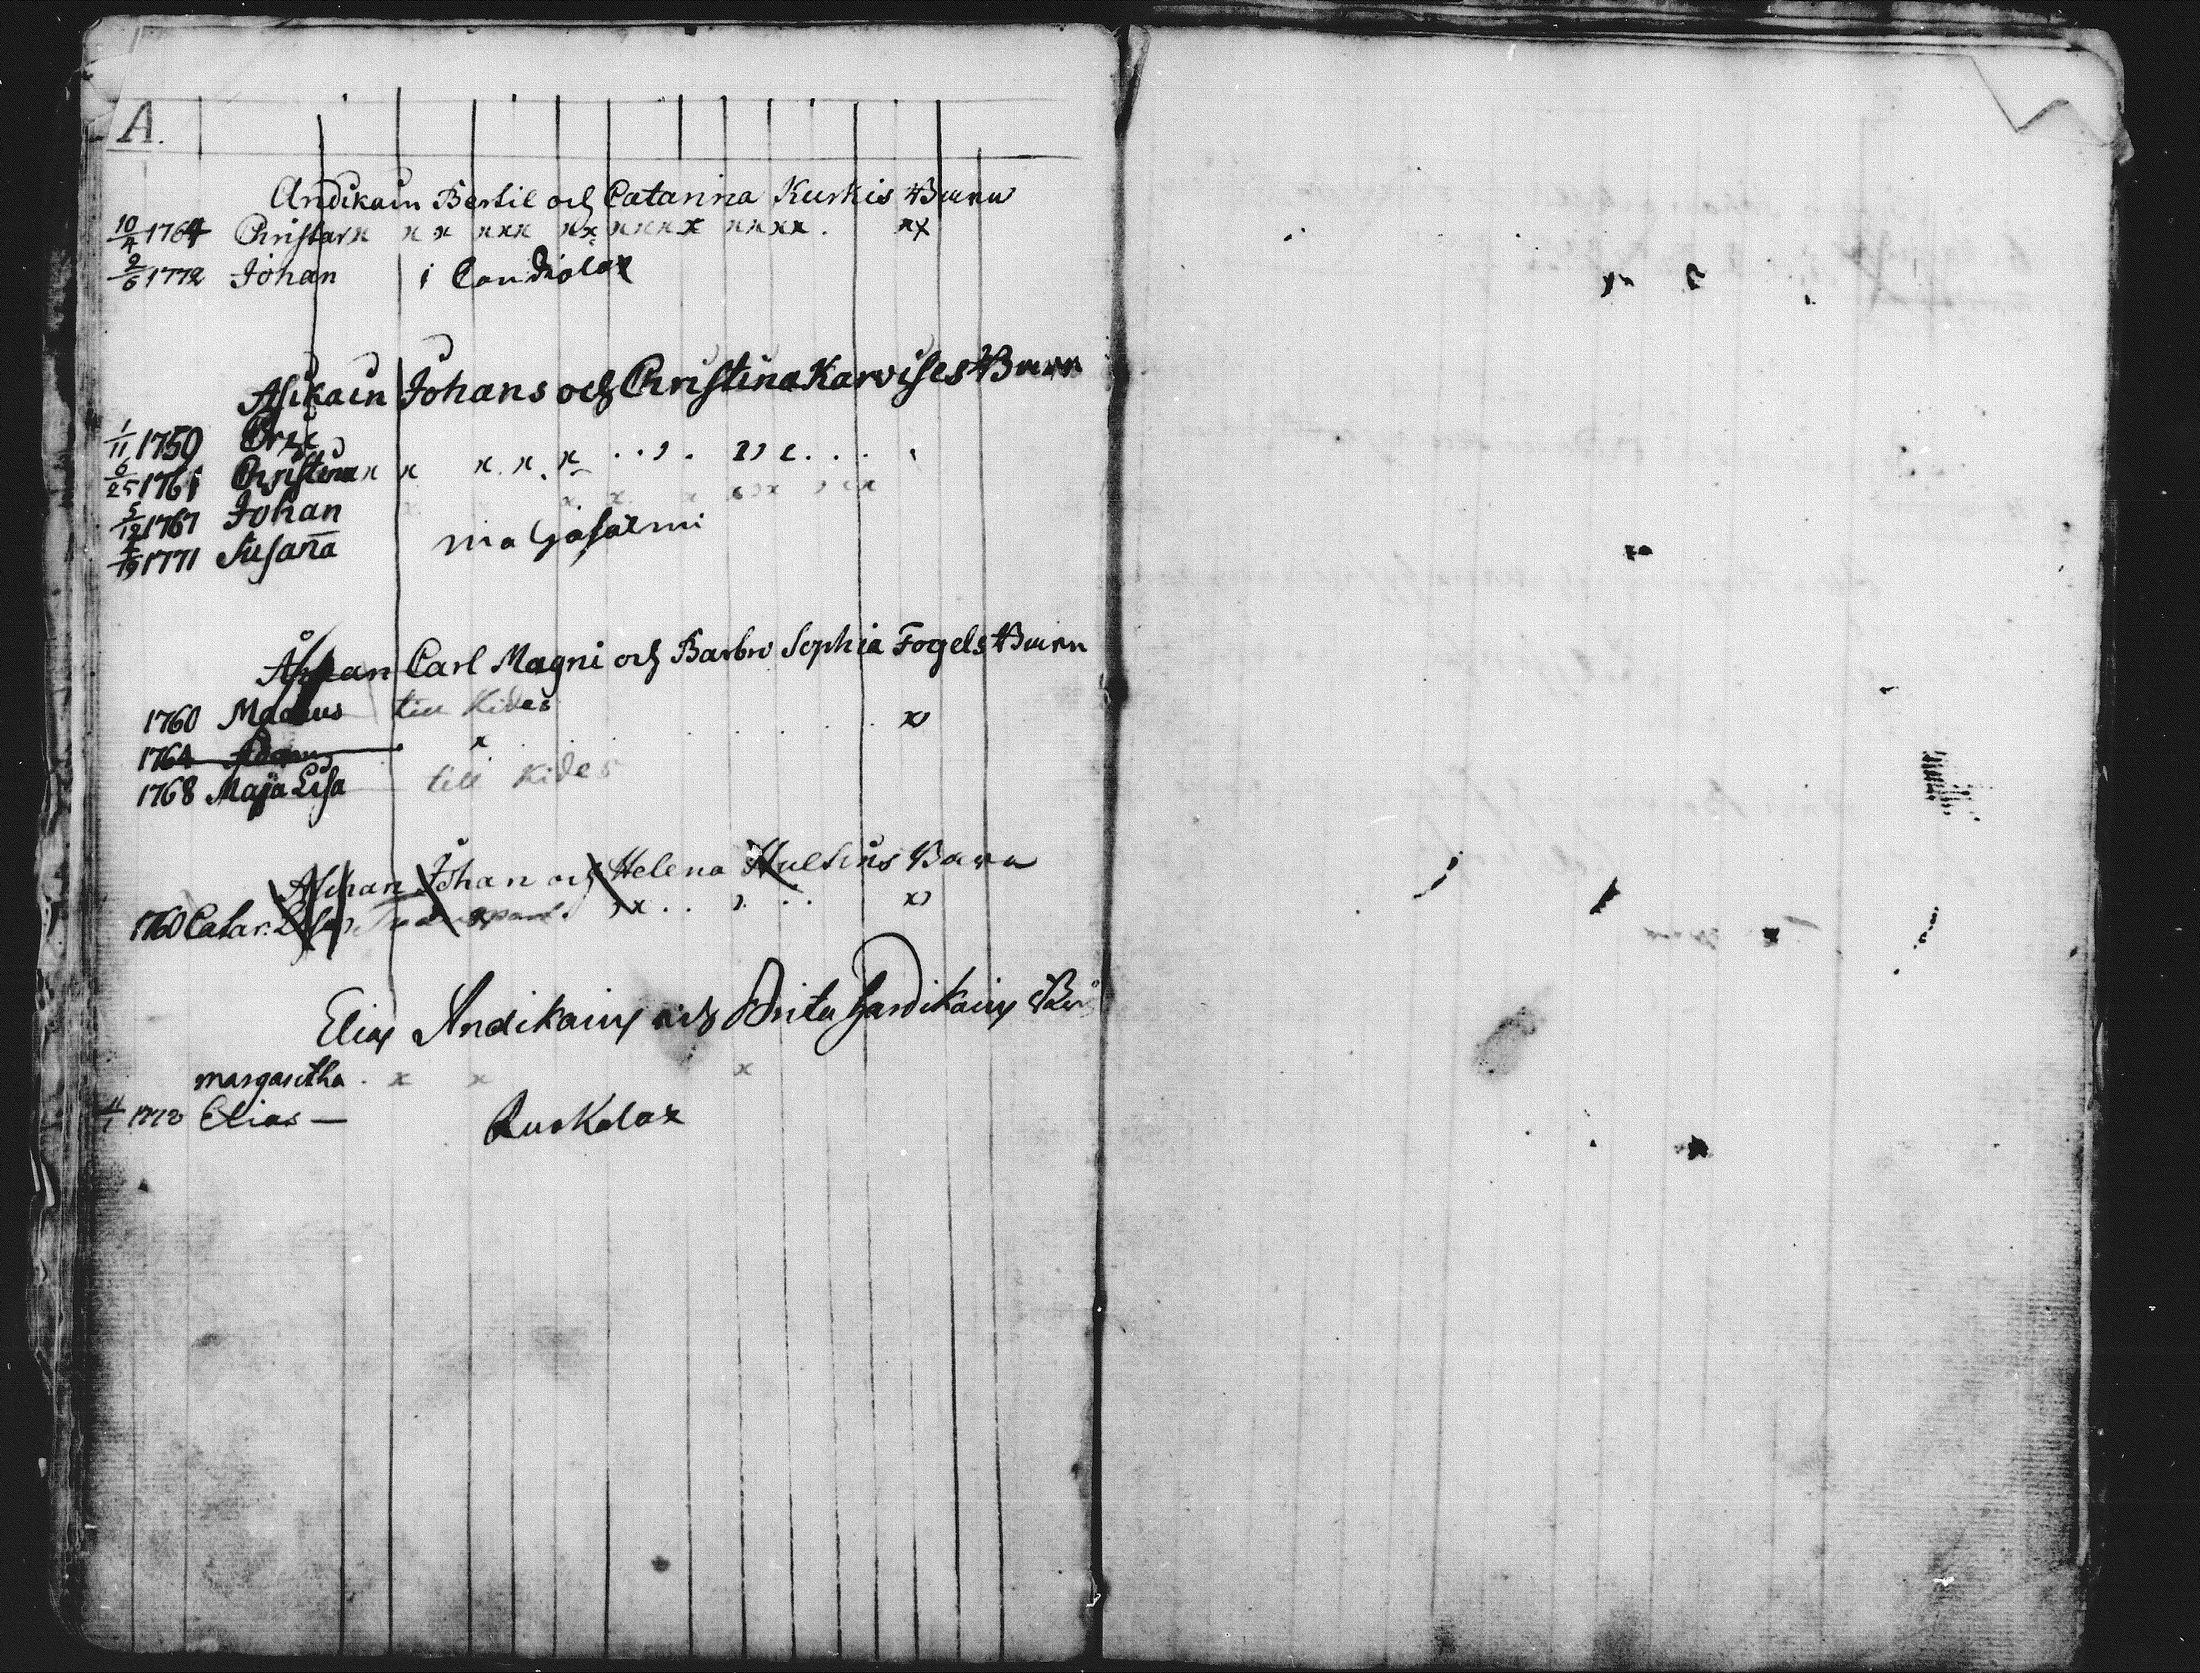 A.
Andikain Bertil och Catarina Kurkis Barn
10/4 1764 Christar x x x x x x x x x x x x x x x x . x x
2/6 1772 Johan i Condiolax
Asikain Johans och Christina Karvises Barn
1/11 1759
6/25 1761 Christina x x x . x . x
5/12 1767 Johan
1771 Susana Maljasalmi
Carl Magni och Barbro Sophia Fogels Barn
1760 Magnus till Kides
1764 Adam x x
1768 Maja Lisa till Kides
Johan och Helena Hultins Barn
1760 Catar: Lisa x x
Elias Andikains och Brita
margaretha . x x x
Elias — Ruokolax